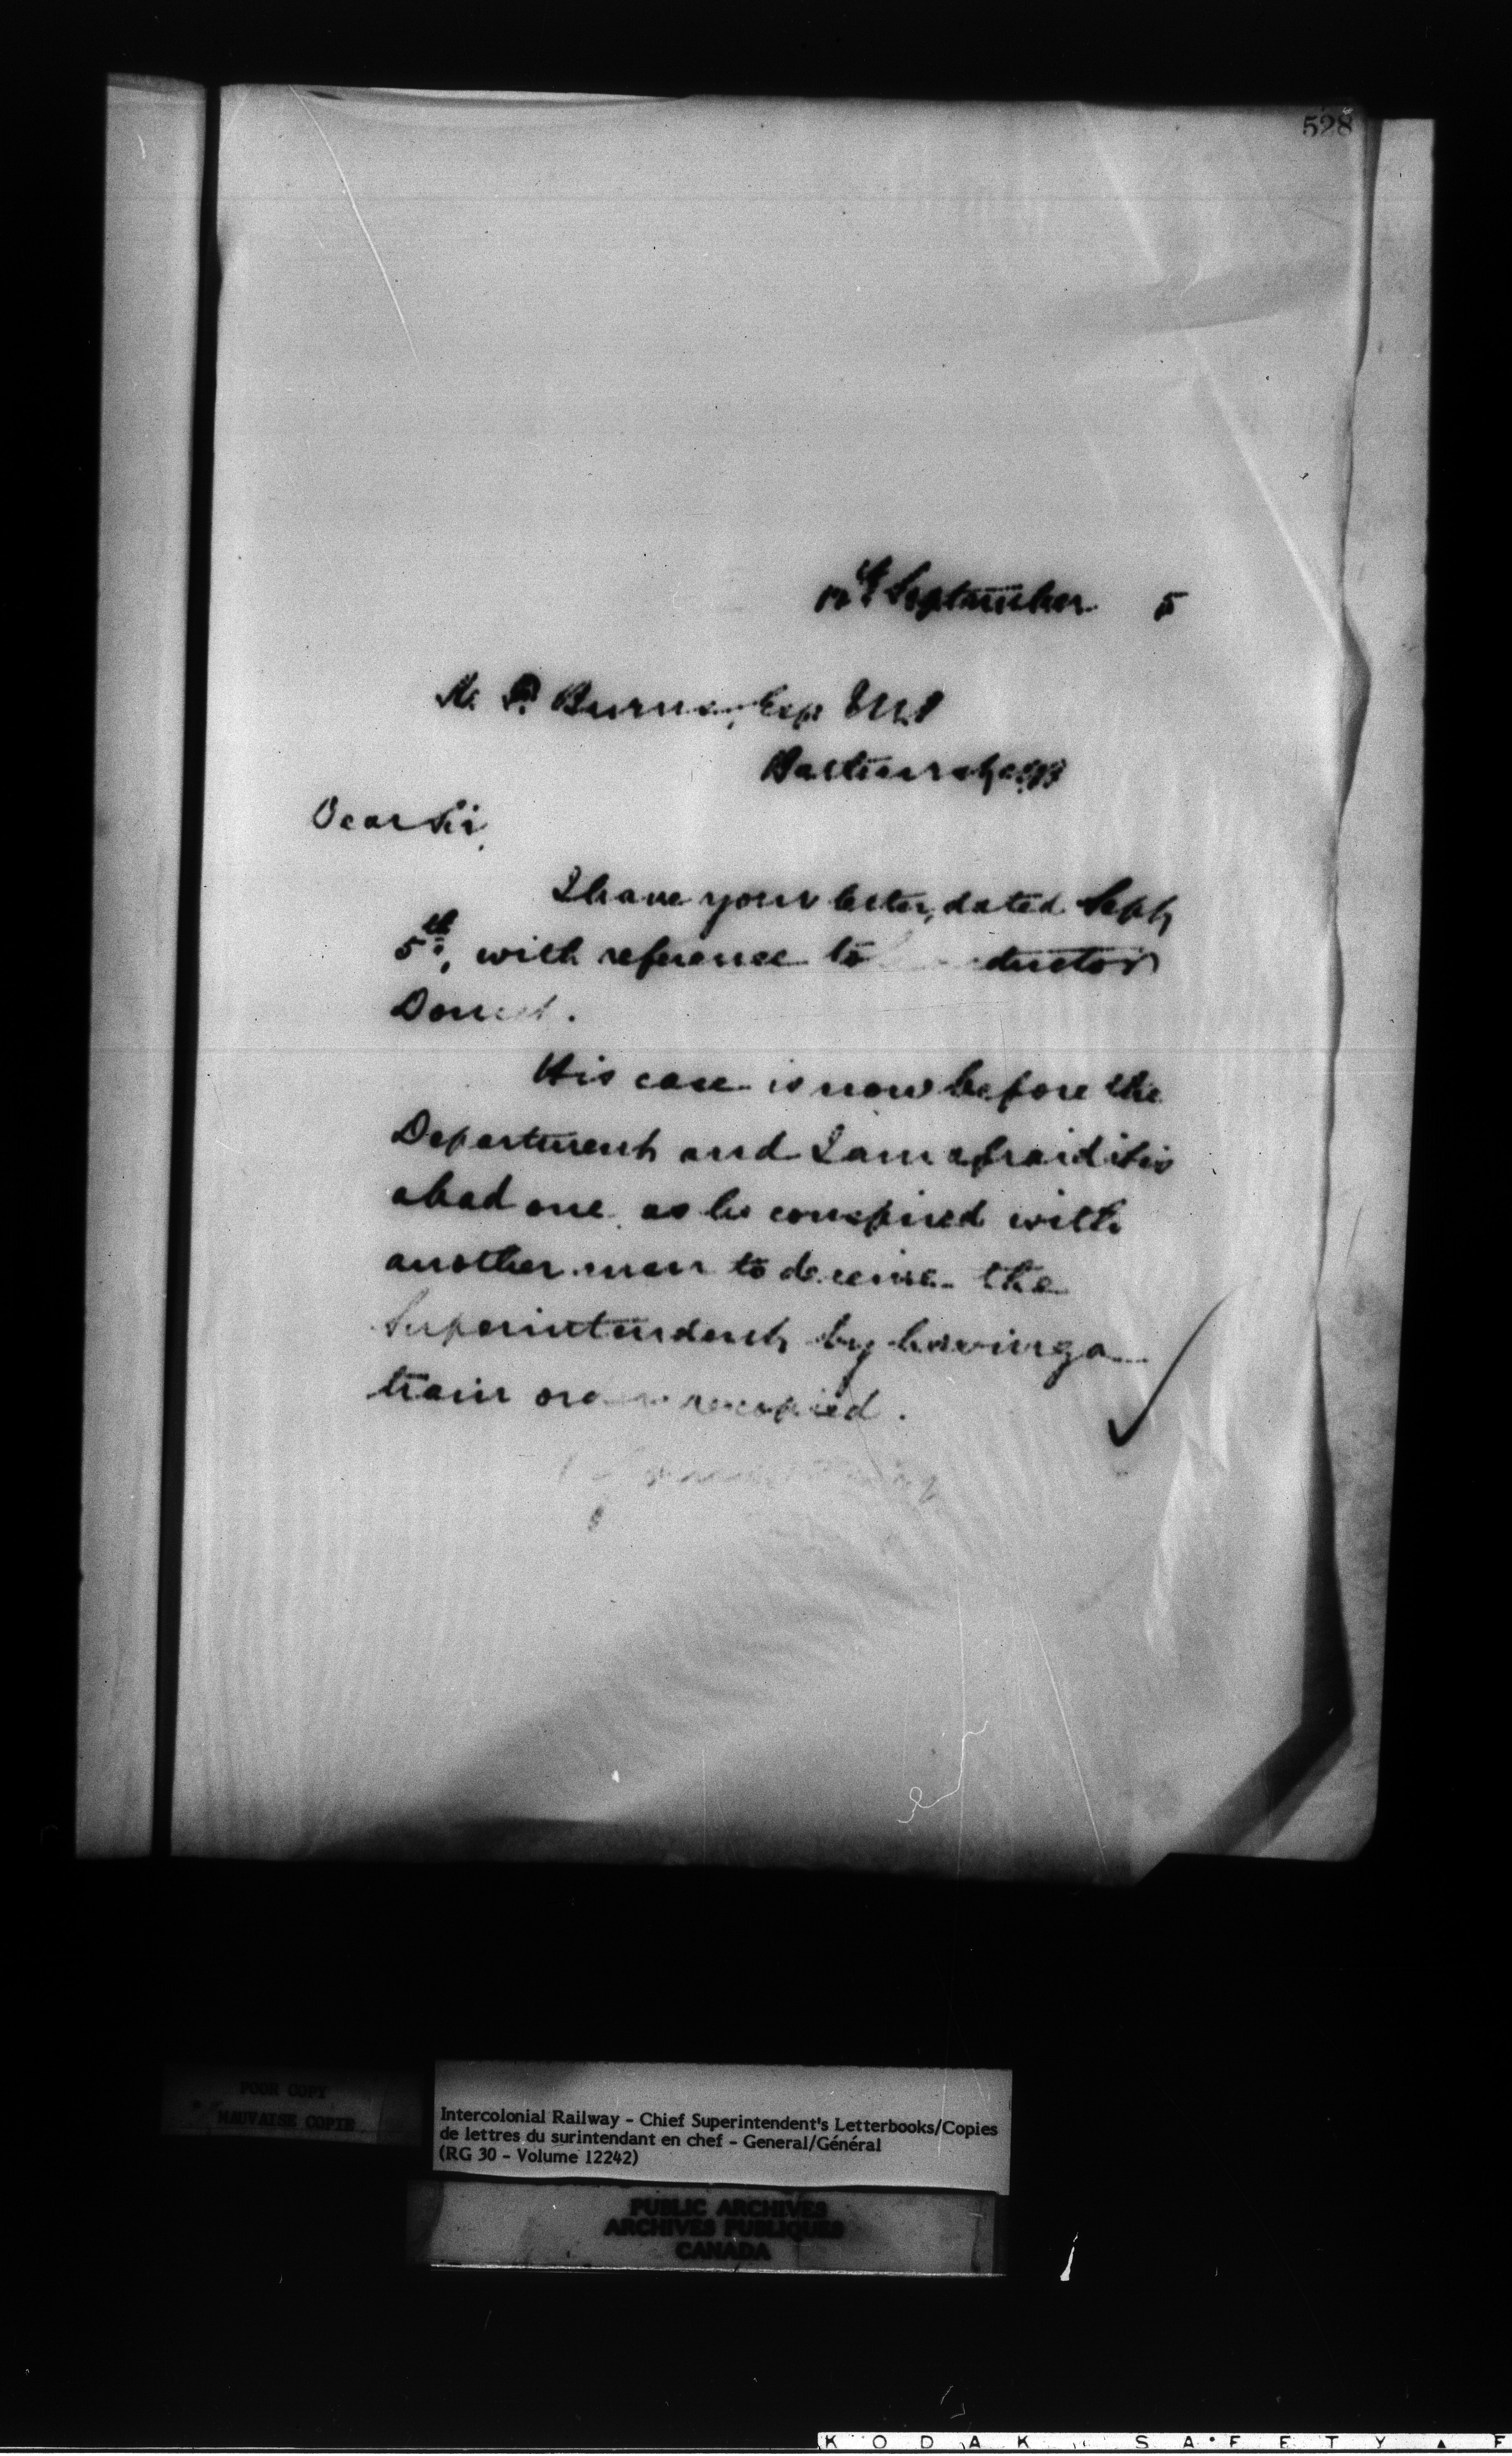 528
12th September 5
K. F. Burns, Esq. M.P.
Bathurst, N.B.
Dear Sir,
I have your letter, dated Sept
5th, with reference to ductor
His case is now before the
Department and I am afraid it is
a bad one, as he conspired with
another man to deceive the
Superintendent by having a
train order recopied.
POOR COPY
MAUVAISE COPIE
Intercolonial Railway - Chief Superintendent's Letterbooks/Copies
de lettres du surintendant en chef - General/Général
(RG 30 - Volume 12242)
PUBLIC ARCHIVES
ARCHIVES PUBLIQUES
CANADA
KODAK SAFETY F